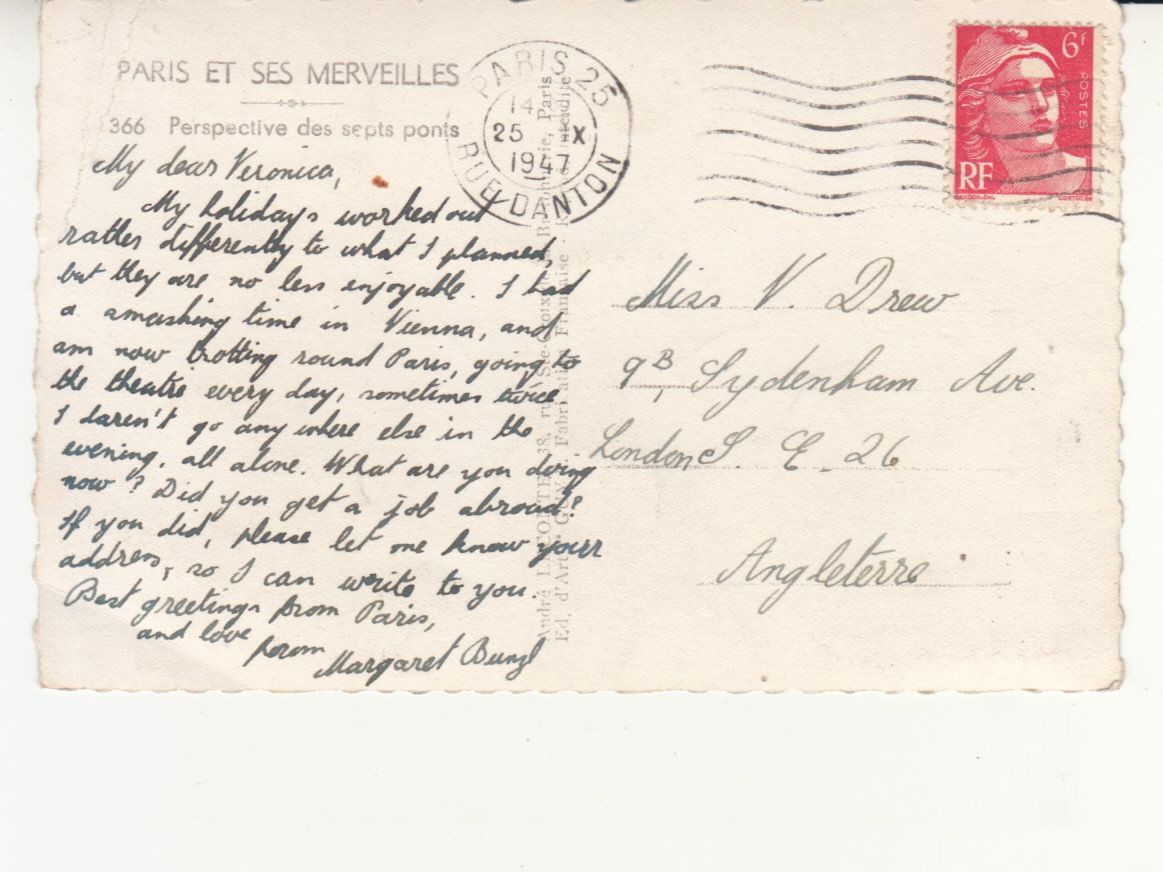 PARIS ET SES MERVEILLES
366 Perspective des septs ponts
My dear Veronica,
My holidays worked out
rather differently to what I planned,
but they are no less enjoyable. I had
a smashing time in Vienna, and
am now trotting round Paris, going to
the theatre every day, sometimes twice.
I daren't go anywhere else in the
evening, all alone. What are you doing
now? Did you get a job abroad?
If you did, please let me know your
address, so I can write to you.
Best greetings from Paris,
and love
from
Margaret Bunzl
André LECONTE, 38, rue Ste-Croix
Ed. d'Art Fabrication Française
Paris
interdite
PARIS 25
14
25 X
1947
RUE DANTON
6F
POSTES
RF
Miss V. Drew
9B, Sydenham Ave.
London S. E. 26
Angleterre